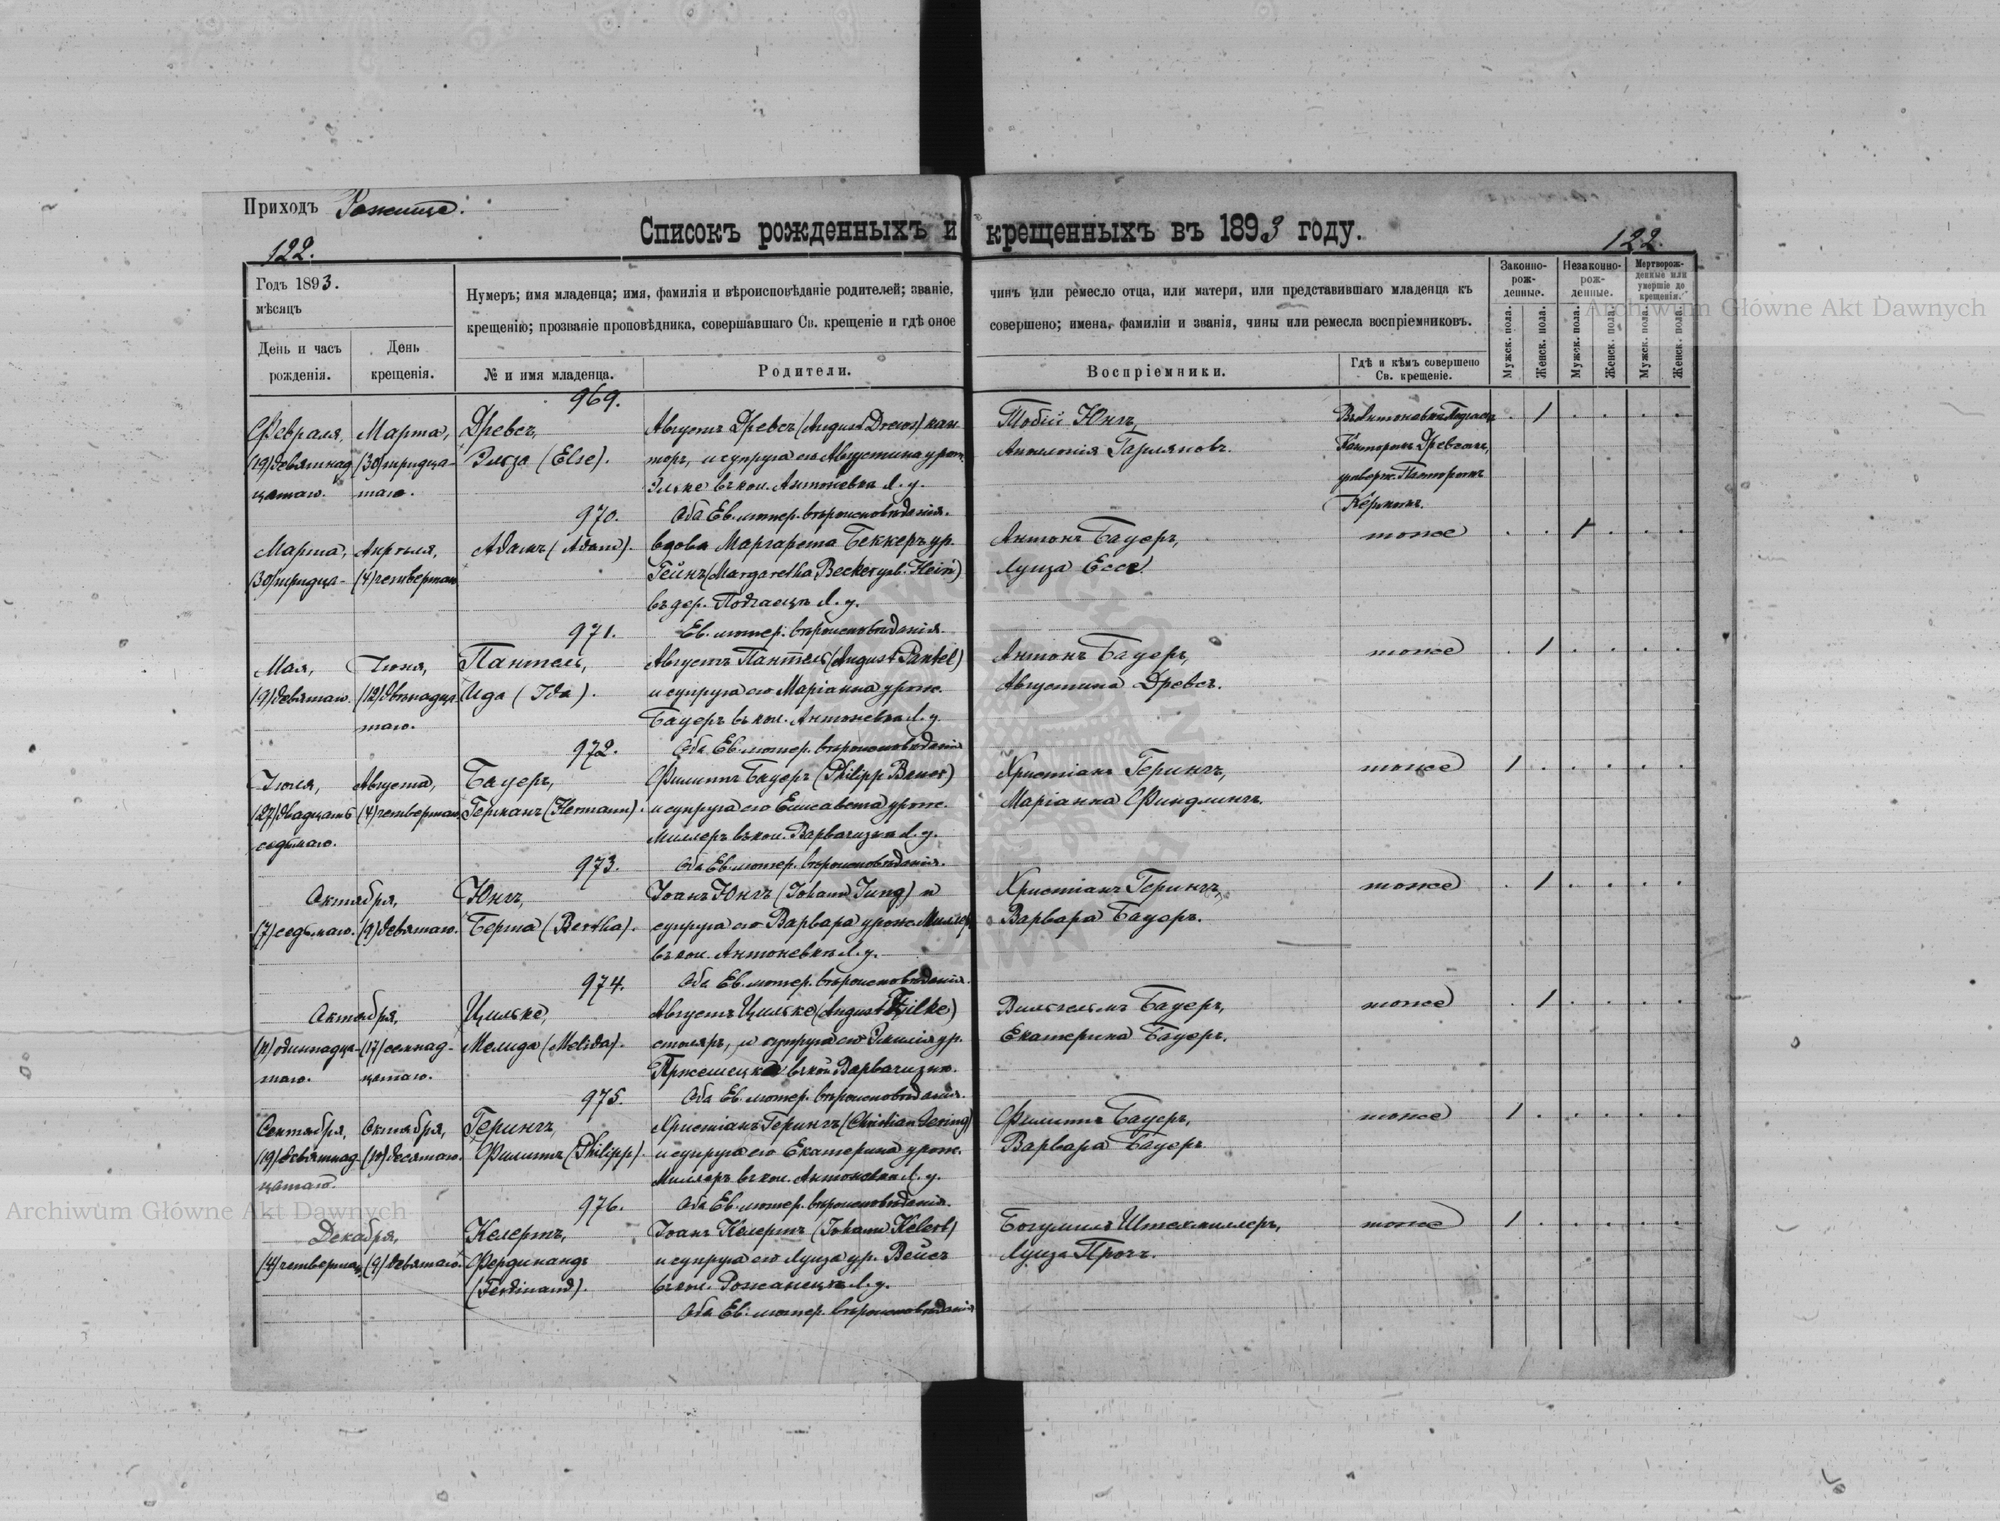 Приходъ Рожище.
Списокъ рожденныхъ и крещенныхъ въ 1893 году.
122.
122.
Годъ 1893.
мѣсяцъ
День и часъ рожденія.
День крещенія.
Нумеръ; имя младенца; имя, фамилія и вѣроисповѣданіе родителей; званіе, чинъ или ремесло отца, или матери, или представившаго младенца къ
крещенію; прозваніе проповѣдника, совершавшаго Св. крещеніе и гдѣ оное совершено; имена, фамиліи и званія, чины или ремесла воспріемниковъ.
№ и имя младенца.
Родители.
Воспріемники.
Гдѣ и кѣмъ совершено Св. крещеніе.
Законно-рож-денные.
Незаконно-рож-денные.
Мертворож-денные или умершіе до крещенія.
Мужск. пола.
Женск. пола.
Мужск. пола.
Женск. пола.
Мужск. пола.
Женск. пола.
969.
Февраля, Марта, Древсъ, Августъ Древсъ (August Drews) кан- Тобій Юнгъ,
(19) девятнад (30) тридца- Эльза (Else). торъ, и супруга его Августина урож. Антонія
цатаго. таго. въ кол. Антоновка Л. у. утверж. Пасторомъ
970. Оба Ев. лютер. вѣроисповѣданія. Керномъ.
Марта, Апрѣля, Адамъ (Adam). вдова Маргарета Беккеръ ур. Антонъ Бауеръ, тоже 1
(30) тридца- (4) четвертаго Гейнъ (Margaretha Becker geb. Hein) Луиза Ессе
въ дер. Подгаецъ Л. у.
971. Ев. лютер. вѣроисповѣданія.
Мая, Іюня, Пантель, Августъ Пантель (August Pantel) Антонъ Бауеръ, тоже 1
(9) девятаго. (12) двѣнадца Ида (Ida). и супруга его Маріанна урож. Августина Древсъ.
таго. Бауеръ въ кол. Антоновка Л. у.
972. Оба Ев. лютер. вѣроисповѣданія
Іюля, Августа, Бауеръ, Филиппъ Бауеръ (Philipp Bauer) Христіанъ Герингъ, тоже 1
(27) двадцать (4) четвертаго. Германъ (Hermann). и супруга его Елисавета урож. Маріанна Финдлингъ.
седьмаго. Миллеръ въ кол. Л. у.
973. Оба Ев. лютер. вѣроисповѣданія.
Октября, Юнгъ, Іоанъ Юнгъ (Johann Jung) и Христіанъ Герингъ, тоже 1
(7) седьмаго. (9) девятаго. Берта (Bertha). супруга его Варвара урож. Миллеръ Варвара Бауеръ.
въ кол. Антоновка Л. у.
974. Оба Ев. лютер. вѣроисповѣданія.
Октября, Цильке, Августъ Цильке (August Zilke) Вильгельмъ Бауеръ, тоже 1
(11) одиннадца- (17) семнад- Мелида (Melida). столяръ, и супруга его Эмилія ур. Екатерина Бауеръ.
таго. цатаго. въ кол.
975. Оба Ев. лютер. вѣроисповѣданія.
Сентября, Октября, Герингъ, Христіанъ Герингъ (Christian Gering) Филиппъ Бауеръ, тоже 1
(19) девятнад (10) десятаго. Филиппъ (Philipp). и супруга его Екатерина урож. Варвара Бауеръ
цатаго. Миллеръ въ кол. Антоновка Л. у.
976. Оба Ев. лютер. вѣроисповѣданія.
Декабря, Келертъ, Іоанъ Келертъ (Johann Kelert) Богумилъ Штекмиллеръ, тоже 1
(4) четвертаго (9) девятаго. Фердинандъ и супруга его Луиза ур. Вейсъ Луиза
(Ferdinand). въ кол. Л. у.
Оба Ев. лютер. вѣроисповѣданія
Archiwum Główne Akt Dawnych
Archiwum Główne Akt Dawnych